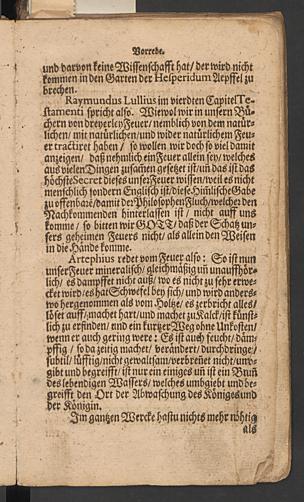 Vorrede.
und darvon keine Wissenschafft hat / der wird nicht
kommen in den Garten der Hesperidum Aepffel zu
brechen.
Raymundus Lullius im vierdten Capitel Te-
stamenti spricht also. Wiewol wir in unsern Bü-
chern von dreyerley Feuer / nemblich von dem natür-
lichen / mit natürlichen / und wider natürlichem Feu-
er tractiret haben / so wollen wir doch so viel damit
anzeigen / daß nehmlich ein Feuer allein sey / welches
aus vielen Dingen zusamen gesetzet ist / un das ist das
höchste Secret dieses unser Feuer wissen / weil es nicht
menschlich sondern Englisch ist / diese Himlische Gabe
zu offenbare / damit der Philosophen Fluch / welcher den
Nachkommenden hinterlassen ist / nicht auff uns
komme / so bitten wir GOTT / daß der Schatz un-
sers geheimen Feuers nicht / als allein den Weisen
in die Hände komme.
Artephius redet vom Feuer also: So ist nun
unser Feuer mineralisch / gleichmäßig uñ unauffhör-
lich / es dampffet nicht auß / wo es nicht zu sehr erwe-
cket wird / es hat Schwefel bey sich / und wird anders-
wo hergenommen als vom Holtze / es zerbricht alles /
löset auff / machet hart und machet zu Kalck / ist künst-
lich zu erfinden / und ein kurtzer Weg ohne Unkosten /
wenn er auch gering were: Es ist auch feucht / däm-
pffig / so da zeitig machet / verändert / durchdringet /
subtil / lüfftig / nicht gewaltsam / verbrennet nicht / umb-
gibt und begreifft / ist nur ein einiges uñ ist ein Brun
des lebendigen Wassers / welches umbgiebt und be-
greifft den Ort der Abwaschung des Königes und
der Königin.
Im gantzen Wercke hastu nichts mehr nöhtig
als